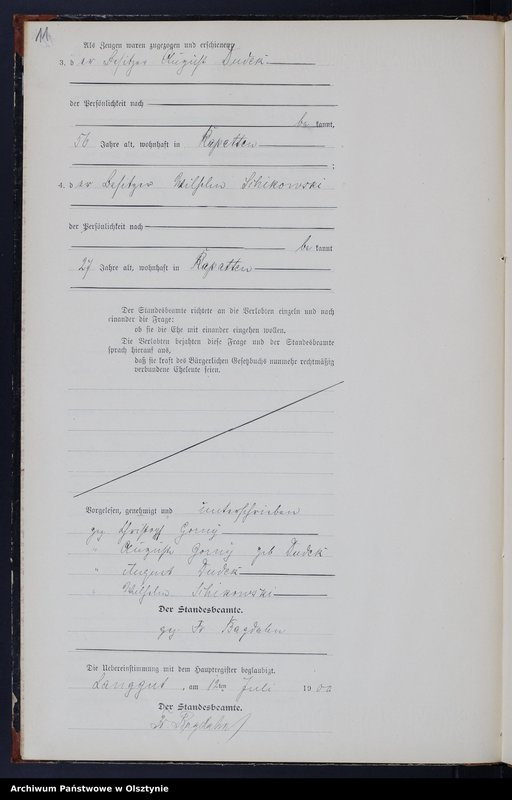 11
Als Zeugen waren zugezogen und erschienen:
3. der Besitzer August Dudek
der Persönlichkeit nach
bekannt,
56 Jahre alt, wohnhaft in Rapatten
;
4. der Besitzer Wilhelm Schikowski
der Persönlichkeit nach
bekannt
27 Jahre alt, wohnhaft in Rapatten
Der Standesbeamte richtete an die Verlobten einzeln und nach
einander die Frage:
ob sie die Ehe mit einander eingehen wollen.
Die Verlobten bejahten diese Frage und der Standesbeamte
sprach hierauf aus,
daß sie kraft des Bürgerlichen Gesetzbuchs nunmehr rechtmäßig
verbundene Eheleute seien.
Vorgelesen, genehmigt und unterschrieben
gez. Christoph Gorny
" Auguste Gorny geb Dudek
" August Dudek
" Wilhelm Schikowski
Der Standesbeamte.
gez. Fr Bagdahn
Die Uebereinstimmung mit dem Hauptregister beglaubigt.
Langgut, am 12ten Juli 1902
Der Standesbeamte.
Fr Bagdahn
Archiwum Państwowe w Olsztynie